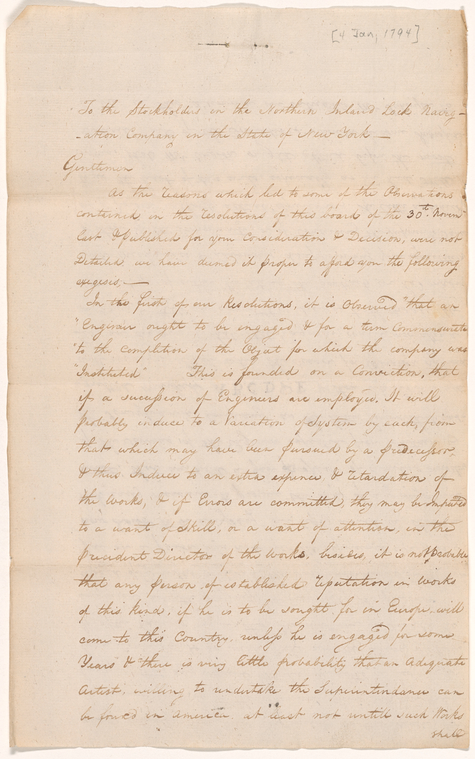 [4 Jan, 1794]
To the Stockholders in the Northern Inland Lock Navig-
-ation Company in the State of New York —
Gentlemen
As the reasons which led to some of the Observations
contained in the resolutions of this board of the 30th. Novem
last & published for your Consideration & Decision, were not
Detailed we have deemed it proper to afford you the following
exegesis. —
In the first of our Resolutions, it is Observed "that an
"Enginair ought to be engaged & for a term Commensurate
"to the completion of the Object for which the company was
"Instituted" This is founded on a Conviction, that
if a sucession of Engineers are employed. It will
probably induce to a Variation of System by each, from
that which may have been pursued by a predecessor,
& thus Induce to an extra expence, & retardation of
the Works, & if Errors are committed, they may be Imputed
to a want of Skill, or a want of attention, in the
precident Director of the Works, besides, it is not probable
that any person of established reputation in Works
of this kind, if he is to be sought for in Europe, will
come to this Country, unless he is engaged for some
Years & there is very little probability that an Adequate
Artist, willing to undertake the Superintendance can
be found in America, at least not untill such Works
shall